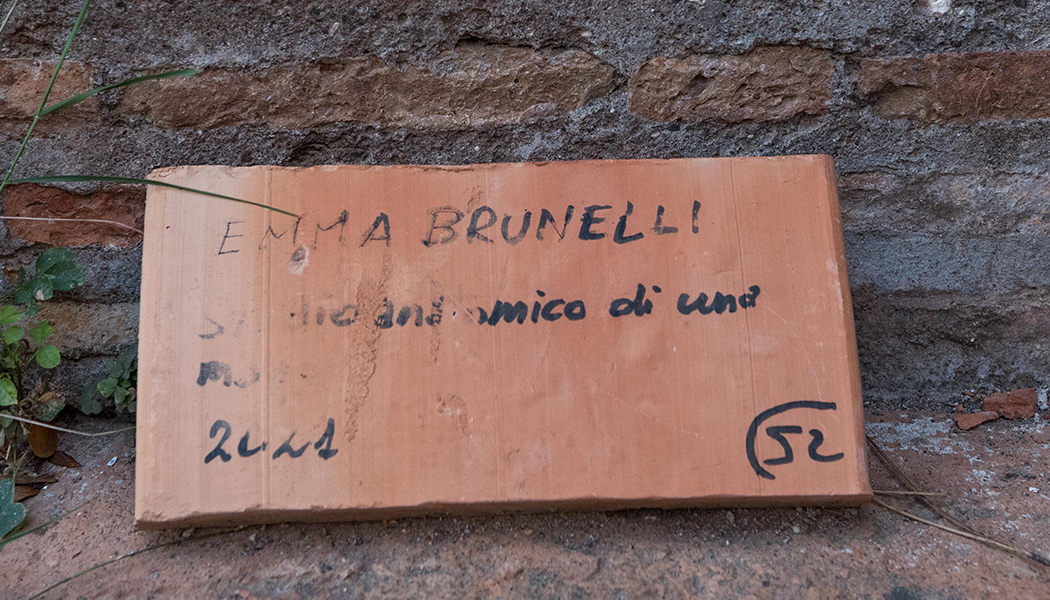 EMMA BRUNELLI
anatomico di una
2021
52